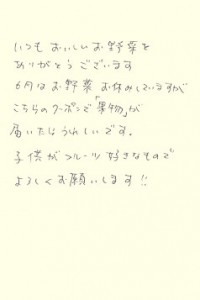 いつもおいしいお野菜を
ありがとうございます
6月はお野菜お休みしていますが
こちらのクーポンで「果物」が
届いたらうれしいです。
子供がフルーツ好きなもので
よろしくお願いします!!